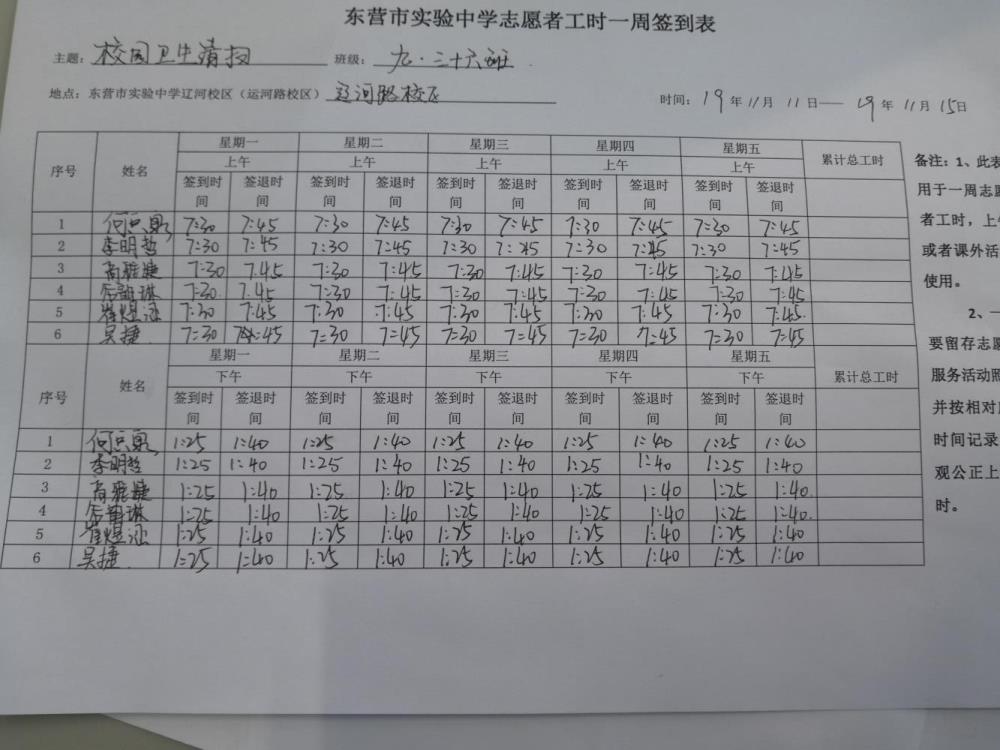 东营市实验中学志愿者工时一周签到表
主题：校园卫生清扫 班级：九·三十六班
地点：东营市实验中学辽河校区（运河路校区）辽河路校区
时间：19年11月11日——19年11月15日
序号 姓名 星期一 星期二 星期三 星期四 星期五 累计总工时
上午 上午 上午 上午 上午
签到时间 签退时间 签到时间 签退时间 签到时间 签退时间 签到时间 签退时间 签到时间 签退时间
1 7:30 7:45 7:30 7:45 7:30 7:45 7:30 7:45 7:30 7:45
2 李明哲 7:30 7:45 7:30 7:45 7:30 7:45 7:30 7:45 7:30 7:45
3 高雅婕 7:30 7:45 7:30 7:45 7:30 7:45 7:30 7:45 7:30 7:45
4 7:30 7:45 7:30 7:45 7:30 7:45 7:30 7:45 7:30 7:45
5 7:30 7:45 7:30 7:45 7:30 7:45 7:30 7:45 7:30 7:45
6 吴捷 7:30 7:45 7:30 7:45 7:30 7:45 7:30 7:45 7:30 7:45
序号 姓名 星期一 星期二 星期三 星期四 星期五 累计总工时
下午 下午 下午 下午 下午
签到时间 签退时间 签到时间 签退时间 签到时间 签退时间 签到时间 签退时间 签到时间 签退时间
1 1:25 1:40 1:25 1:40 1:25 1:40 1:25 1:40 1:25 1:40
2 李明哲 1:25 1:40 1:25 1:40 1:25 1:40 1:25 1:40 1:25 1:40
3 高雅婕 1:25 1:40 1:25 1:40 1:25 1:40 1:25 1:40 1:25 1:40
4 1:25 1:40 1:25 1:40 1:25 1:40 1:25 1:40 1:25 1:40
5 1:25 1:40 1:25 1:40 1:25 1:40 1:25 1:40 1:25 1:40
6 吴捷 1:25 1:40 1:25 1:40 1:25 1:40 1:25 1:40 1:25 1:40
备注：1、此表
用于一周志愿
者工时，上午
或者课外活
使用。
2、一
要留存志愿
服务活动照
并按相对
时间记录
观公正上
时。